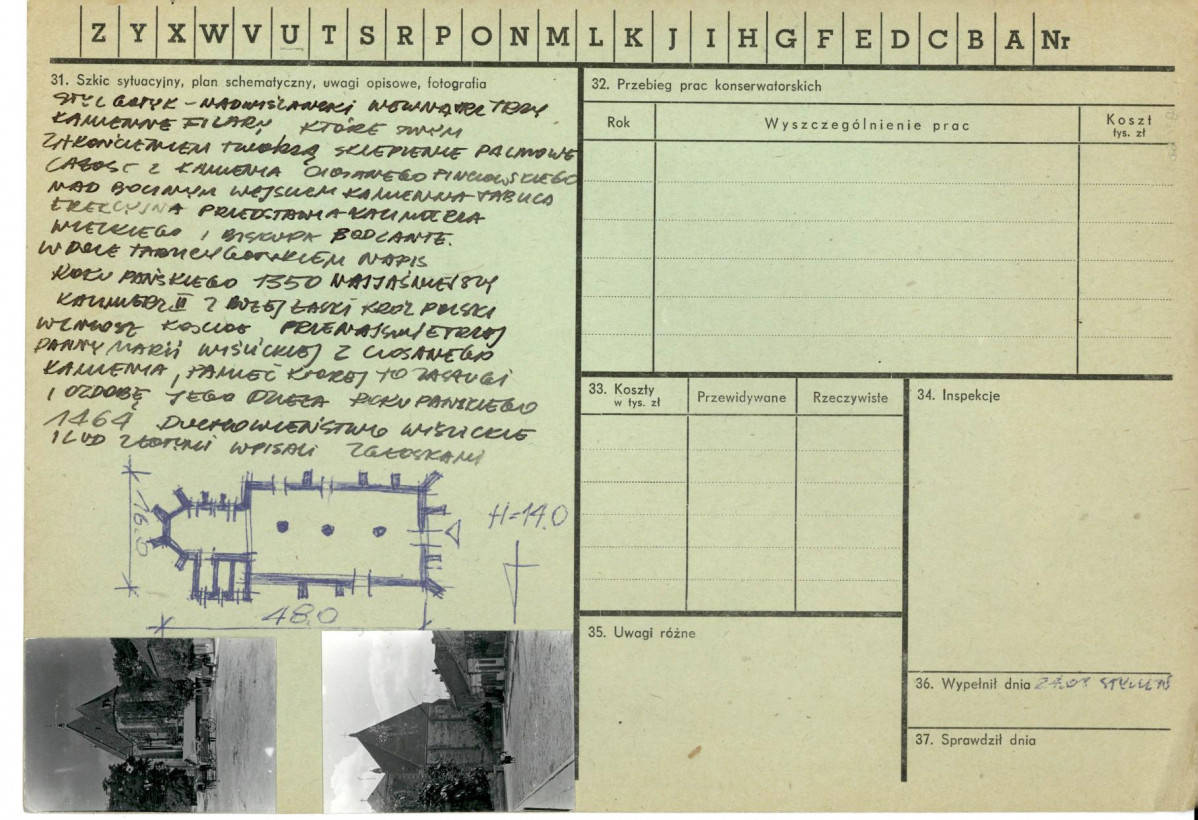 Z Y X W V U T S R P O N M L K J I H G F E D C B A Nr
31. Szkic sytuacyjny, plan schematyczny, uwagi opisowe, fotografia
STYL GOTYK - NADWIŚLAŃSKI WEWNĄTRZ TRZY
KAMIENNE FILARY, KTÓRE SWYM
ZAKOŃCZENIEM TWORZĄ SKLEPIENIE PALMOWE
CAŁOŚĆ Z KAMIENIA CIOSANEGO PIŃCZOWSKIEGO
NAD BOCZNYM WEJŚCIEM KAMIENNA TABLICA
EREKCYJNA PRZEDSTAWIA KAZIMIERZA
WIELKIEGO I BISKUPA BODZANTĘ.
W DOLE TABLICY GOTYKIEM NAPIS
ROKU PAŃSKIEGO 1350 NAJJAŚNIEJSZY
KAZIMIERZ II Z BOŻEJ ŁASKI KRÓL POLSKI
WZNIÓSŁ KOŚCIÓŁ PRZENAJŚWIĘTRZEJ
PANNY MARII WIŚLICKIEJ Z CIOSANEGO
KAMIENIA, PAMIĘĆ KTÓREJ TO ZASŁUGI
I OZDOBĘ TEGO DZIEŁA ROKU PAŃSKIEGO
1464 DUCHOWIEŃSTWO WIŚLICKIE
I LUD ZŁOTYMI WPISALI ZGŁOSKAMI
16.0
H=14.0
48.0
32. Przebieg prac konserwatorskich
Rok Wyszczególnienie prac Koszt
tys. zł
33. Koszty
w tys. zł
Przewidywane Rzeczywiste
34. Inspekcje
35. Uwagi różne
36. Wypełnił dnia
37. Sprawdził dnia